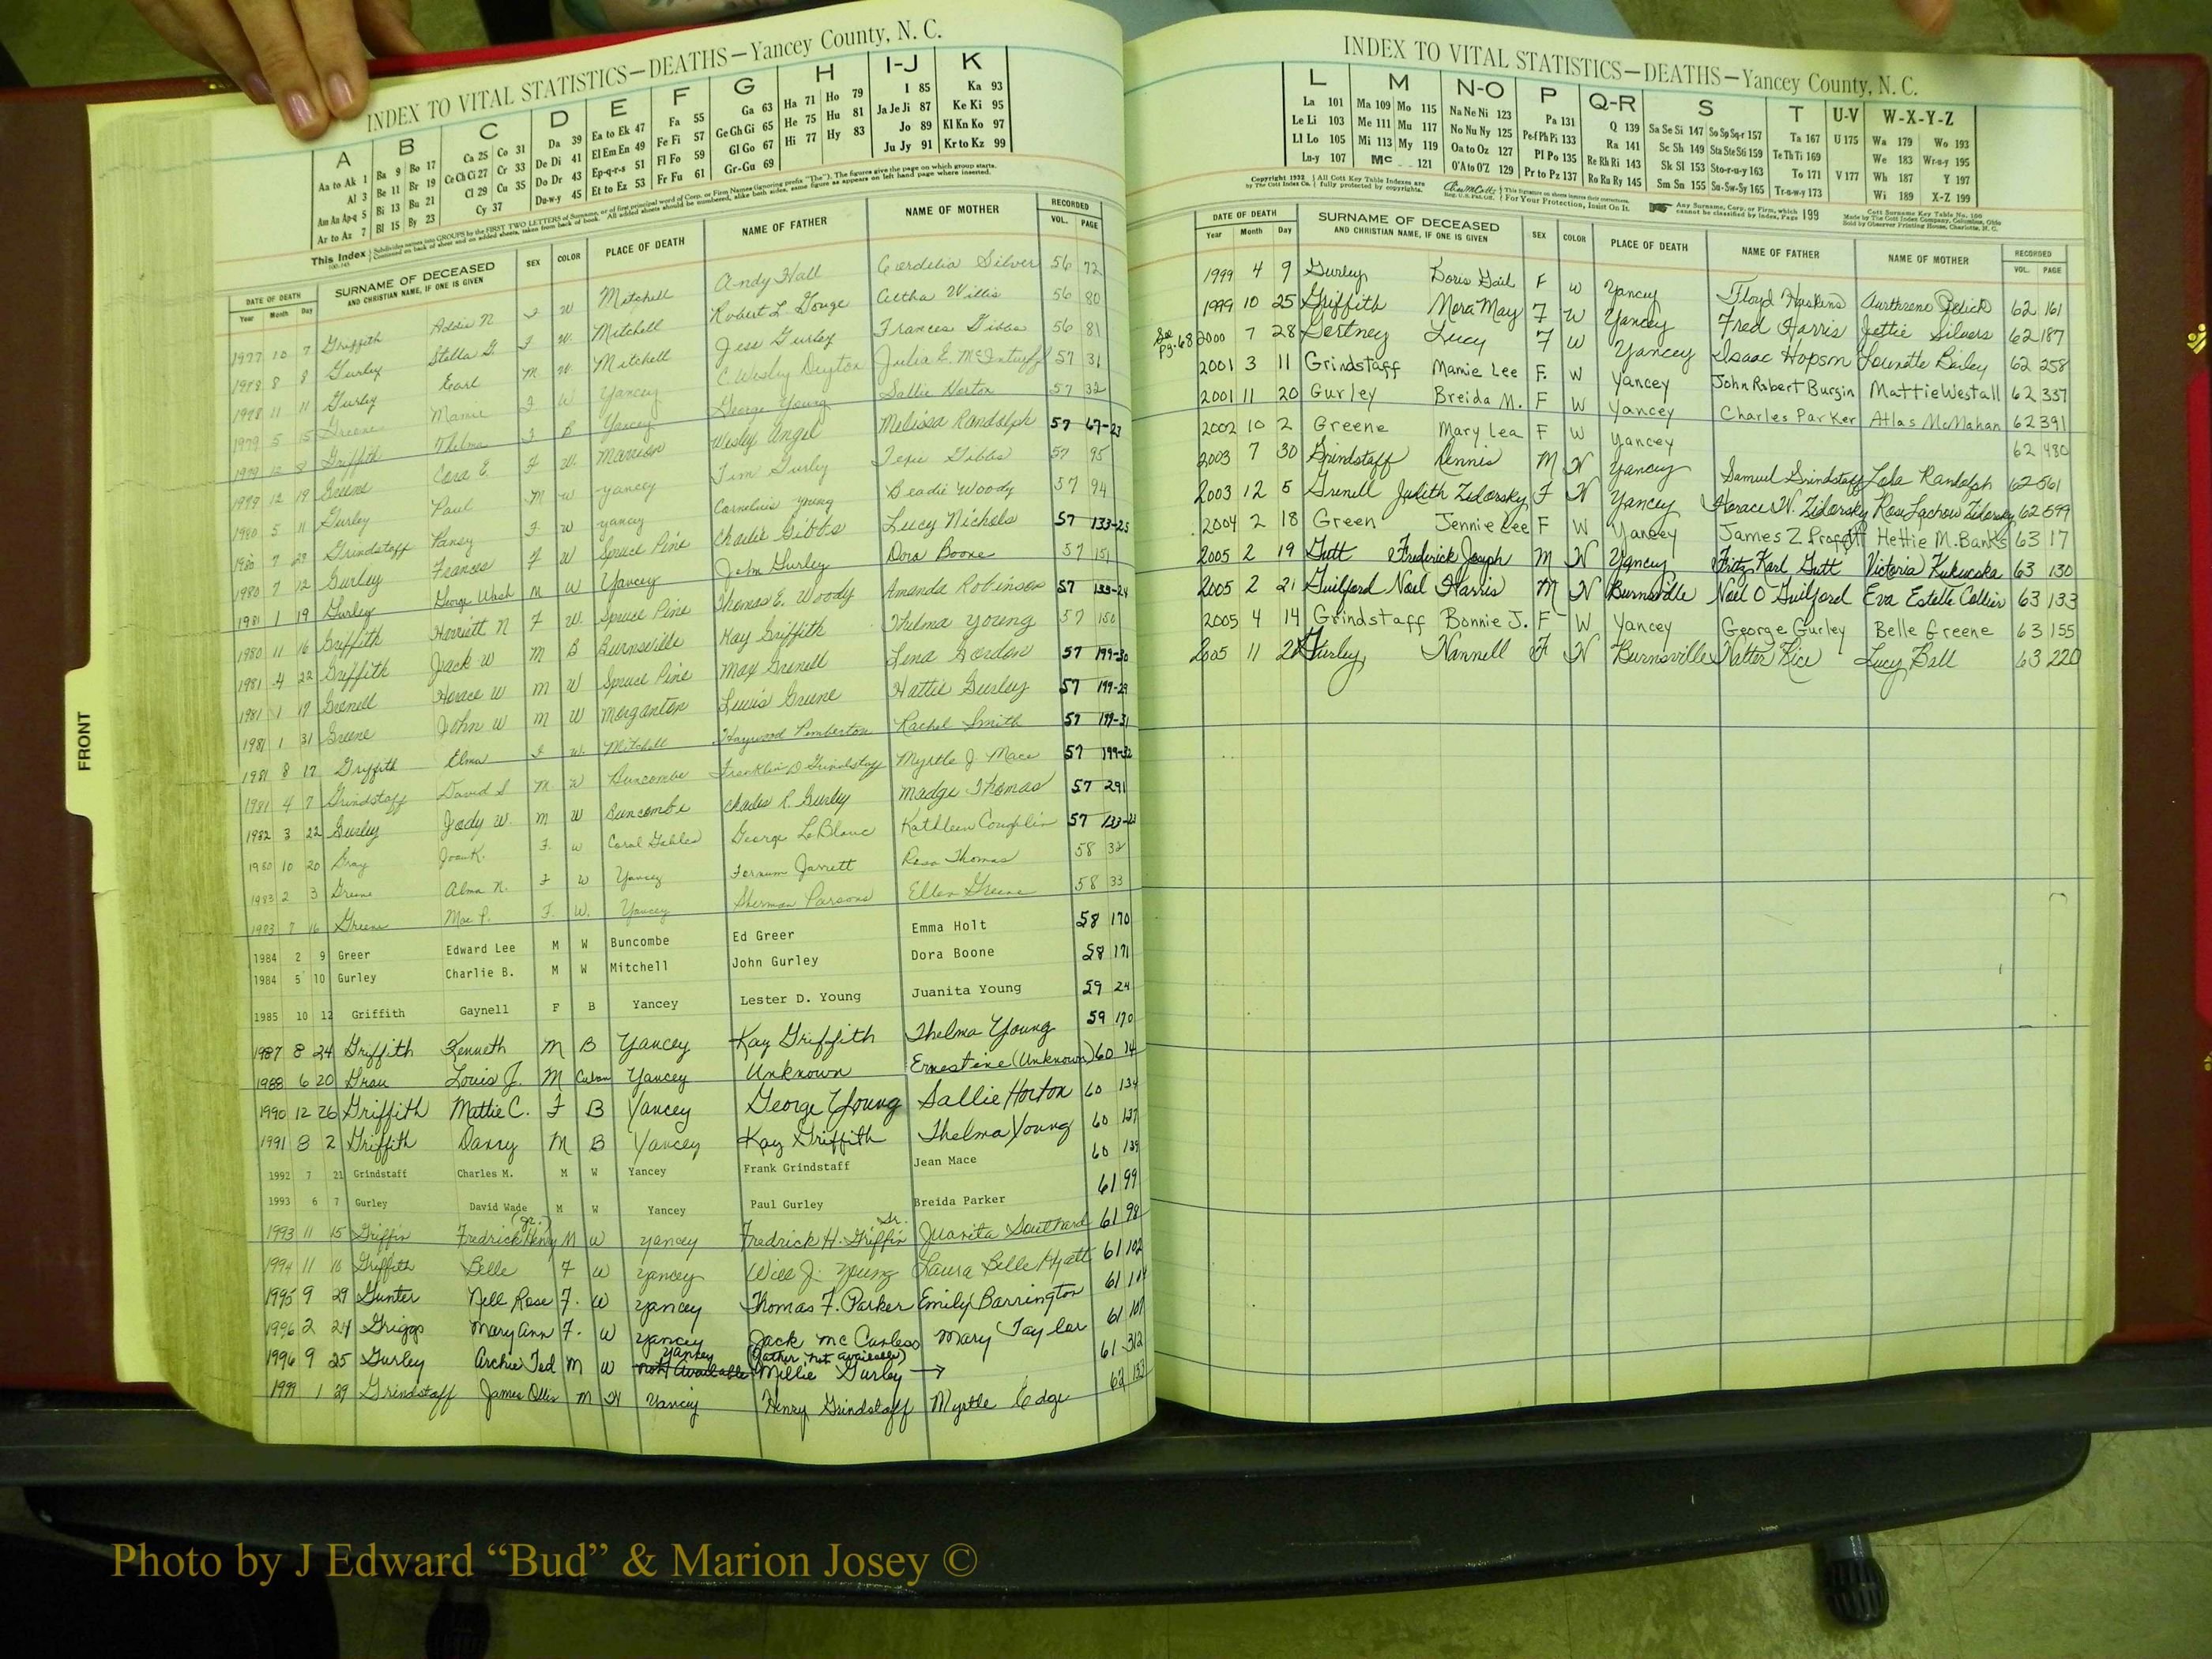 INDEX TO VITAL STATISTICS—DEATHS—Yancey County, N. C.
A B C D E F G H I-J K
Aa to Ak 1 Ba 9 Bo 17 Ca 25 Co 31 Da 39 Ea to Ek 47 Fa 55 Ga 63 Ha 71 Ho 79 I 85 Ka 93
Al 3 Be 11 Br 19 Ce Ch Ci 27 Cr 33 De Di 41 El Em En 49 Fe Fi 57 Ge Gh Gi 65 He 75 Hu 81 Ja Je Ji 87 Ke Ki 95
Am An Ap-q 5 Bi 13 Bu 21 Cl 29 Cu 35 Do Dr 43 Ep-q-r-s 51 Fl Fo 59 Gl Go 67 Hi 77 Hy 83 Jo 89 Kl Kn Ko 97
Ar to Az 7 Bl 15 By 23 Cy 37 Du-w-y 45 Et to Ez 53 Fr Fu 61 Gr-Gu 69 Ju Jy 91 Kr to Kz 99
This Index
DATE OF DEATH SURNAME OF DECEASED SEX COLOR PLACE OF DEATH NAME OF FATHER NAME OF MOTHER RECORDED
Year Month Day AND CHRISTIAN NAME, IF ONE IS GIVEN VOL. PAGE
1977 10 7 Griffith Addie N F W Mitchell Andy Hall Cordelia Silver 56 72
1978 8 8 Gurley Stella G. F W. Mitchell Robert L. Gouge Aletha Willis 56 80
1978 11 11 Gurley Earl M W. Mitchell Jess Gurley Frances Gibbs 56 81
1979 5 15 Greene Mamie F W Yancey C. Wesley Deyton Julia E. McInturff 57 31
1979 12 8 Griffith Thelma F B Yancey George Young Sallie Horton 57 32
1979 12 19 Greene Cora E F W. Marion Wesley Angel Melissa Randolph 57 67-23
1980 5 11 Gurley Paul M W Yancey Tim Gurley Texie Gibbs 57 95
1980 7 28 Grindstaff Pansy F W Yancey Cornelius Young Beadie Woody 57 94
1980 7 12 Gurley Frances F W Spruce Pine Charlie Gibbs Lucy Nichols 57 133-25
1981 1 19 Gurley George Wash M W Yancey John Gurley Dora Boone 57 151
1980 11 16 Griffith Harriett N F W. Spruce Pine Thomas E. Woody Amanda Robinson 57 133-24
1981 4 22 Griffith Jack W M B Burnsville Kay Griffith Thelma Young 57 150
1981 1 17 Grenell Horace W M W Spruce Pine Max Grenell Lena Gordon 57 199-30
1981 1 31 Greene John W M W Morganton Lewis Greene Hattie Gurley 57 199-29
1981 8 17 Griffith Elma F W. Mitchell Haywood Pemberton Rachel Smith 57 199-31
1981 4 7 Grindstaff David S M W Buncombe Franklin D Grindstaff Myrtle J Mace 57 199-32
1982 3 22 Gurley Jody W. M W Buncombe Charles R. Gurley Madge Thomas 57 291
1980 10 20 Gray Joan K. F. W Coral Gables George LeBlanc Kathleen Coughlin 57 133-23
1983 2 3 Greene Alma N. F W Yancey Fernum Jarrett Rosa Thomas 58 32
1983 7 16 Greene Mae P. F. W. Yancey Sherman Parsons Ellen Greene 58 33
1984 2 9 Greer Edward Lee M W Buncombe Ed Greer Emma Holt 58 170
1984 5 10 Gurley Charlie B. M W Mitchell John Gurley Dora Boone 58 171
1985 10 12 Griffith Gaynell F B Yancey Lester D. Young Juanita Young 59 24
1987 8 24 Griffith Kenneth M B Yancey Kay Griffith Thelma Young 59 170
1988 6 20 Grau Louis J. M Cuban Yancey Unknown Ernestine (Unknown) 60 14
1990 12 26 Griffith Mattie C. F B Yancey George Young Sallie Horton 60 134
1991 8 2 Griffith Danny M B Yancey Kay Griffith Thelma Young 60 137
1992 7 21 Grindstaff Charles M. M W Yancey Frank Grindstaff Jean Mace 60 139
1993 6 7 Gurley David Wade M W Yancey Paul Gurley Breida Parker 61 99
1993 11 15 Griffin Fredrick Henry (Jr.) M W Yancey Fredrick H. Griffin Sr. Juanita Southard 61 98
1994 11 16 Griffith Belle F W Yancey Will J. Young Laura Belle Hyatt 61 102
1995 9 29 Gunter Nell Rose F. W Yancey Thomas F. Parker Emily Barrington 61 114
1996 2 24 Griggs Mary Ann F. W Yancey Jack McCanless Mary Taylor 61 107
1996 9 25 Gurley Archie Ted M W Yancey not available (Father not available) Millie Gurley → 61 312
1999 1 29 Grindstaff James Ollis M W Yancey Henry Grindstaff Myrtle Edge 62 153
FRONT
INDEX TO VITAL STATISTICS—DEATHS—Yancey County, N. C.
L M N-O P Q-R S T U-V W-X-Y-Z
La 101 Ma 109 Mo 115 Na Ne Ni 123 Pa 131 Q 139 Sa Se Si 147 So Sp Sq-r 157 Ta 167 U 175 Wa 179 Wo 193
Le Li 103 Me 111 Mu 117 No Nu Ny 125 Pe-f Ph Pi 133 Ra 141 Sc Sh 149 Sta Ste Sti 159 Te Th Ti 169 We 183 Wr-u-y 195
Ll Lo 105 Mi 113 My 119 Oa to Oz 127 Pl Po 135 Re Rh Ri 143 Sk Sl 153 Sto-r-u-y 163 To 171 V 177 Wh 187 Y 197
Lu-y 107 Mc 121 O'A to O'Z 129 Pr to Pz 137 Ro Ru Ry 145 Sm Sn 155 Su-Sw-Sy 165 Tr-u-w-y 173 Wi 189 X-Z 199
Copyright 1932 by The Cott Index Co. All Cott Key Table Indexes are fully protected by copyrights. For Your Protection, Insist On It. Any Surname, Corp. or Firm, which cannot be classified by Index, Page 199
Cott Surname Key Table No. 100
Made by The Cott Index Company, Columbus, Ohio
Sold by Observer Printing House, Charlotte, N. C.
DATE OF DEATH SURNAME OF DECEASED SEX COLOR PLACE OF DEATH NAME OF FATHER NAME OF MOTHER RECORDED
Year Month Day AND CHRISTIAN NAME, IF ONE IS GIVEN VOL. PAGE
1999 4 9 Gurley Doris Gail F W Yancey Floyd Haskins 62 161
1999 10 25 Griffith Nora May F W Yancey Fred Harris Jettie Silvers 62 187
See Pg. 68 2000 7 28 Gortney Lucy F W Yancey Isaac Hopson Lounette Bailey 62 258
2001 3 11 Grindstaff Mamie Lee F. W Yancey John Robert Burgin Mattie Westall 62 337
2001 11 20 Gurley Breida M. F W Yancey Charles Parker Atlas McMahan 62 391
2002 10 2 Greene Mary Lea F W Yancey 62 480
2003 7 30 Grindstaff Dennis M W Yancey Samuel Grindstaff Lola Randolph 62 561
2003 12 5 Grenell Judith Zidorsky F W Yancey Horace W. Zidorsky Rose Lachow Zidorsky 62 599
2004 2 18 Green Jennie Lee F W Yancey James Z Proffitt Hettie M. Banks 63 17
2005 2 19 Gutt Frederick Joseph M W Yancey Fritz Karl Gutt Victoria Kukucska 63 130
2005 2 21 Guilford Noel Harris M W Burnsville Noel O Guilford Eva Estelle Collier 63 133
2005 4 14 Grindstaff Bonnie J. F W Yancey George Gurley Belle Greene 63 155
2005 11 2 Gurley, Nannell F W Burnsville Natter Rice Lucy Ball 63 220
Photo by J Edward “Bud” & Marion Josey ©